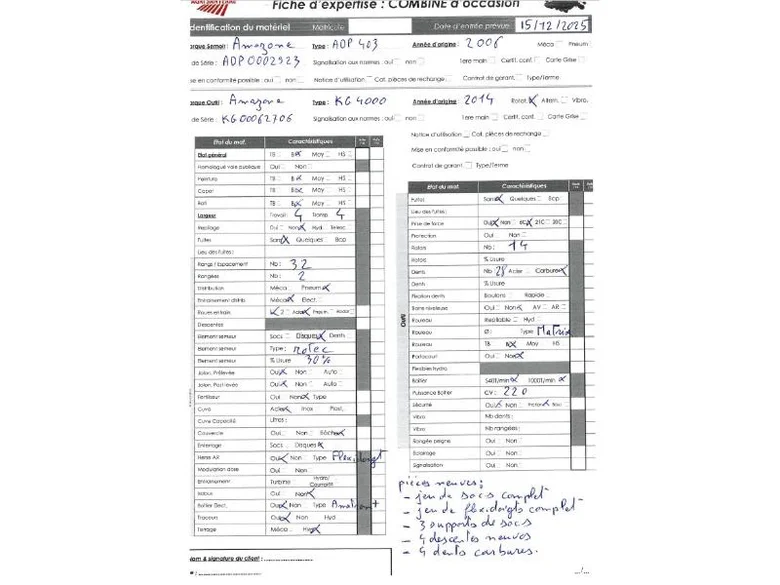 Fiche d'expertise : COMBINE d'occasion
dentification du matériel Matricule Date d'entrée prévue 15/12/2025
rque Semoir : Amazone Type : ADP 403 Année d'origine : 2006 Méca Pneum
de Série : ADP0002923 Signalisation aux normes : oui non 1ere main Certif. conf. Carte Grise
se en conformité possible : oui non Notice d'utilisation Cat. pièces de rechange Contrat de garant. Type/Terme
rque Outil : Amazone Type : KG4000 Année d'origine : 2014 Rotat. X Altern. Vibro.
de Série : KG00062706 Signalisation aux normes : oui non 1ere main Certif. conf. Carte Grise
Notice d'utilisation Cat. pièces de rechange
Mise en conformité possible : oui non
Contrat de garant. Type/Terme
Etat du mat. Caractéristiques
Etat général TB B X Moy HS
Homologué voie publique Oui Non
Peinture TB B X Moy HS
Capot TB B X Moy HS
Bati TB B X Moy HS
Largeur Travail : 4 Transp 4
Repliage Oui Non X Hyd Telesc
Fuites Sans X Quelques Bcp
Lieu des fuites :
Rangs / Espacement Nb : 32
Rangées Nb : 2
Distribution Méca Pneum X
Entrainement distrib Méca X Elect.
Roues en train
Descentes
Element semeur Socs Disques X Dents
Element semeur Type : Rotec
Element semeur % Usure 30%
Jalon. Prélevée Oui X Non Auto
Jalon. Post-levée Oui X Non Auto
Fertiliseur Oui Non X Type
Cuve Acier X Inox Poly.
Cuve Capacité Litres :
Couvercle Oui Non Bâche X
Enterrage Socs Disques X
Herse AR Oui X Non Type Flexidoigt
Modulation dose Oui Non
Entrainement Turbine Hydro/
Non X
Boitier Elect. Oui X Non Type Amatron +
Traceurs Oui X Non Hyd
Terrage Méca Hyd X
Nom & signature du client :
Etat du mat. Caractéristiques
Fuites Sans X Quelques Bcp
Lieu des fuites :
Prise de force Oui X Non
Protection Oui Non
Rotors Nb : 14
Rotors % Usure
Outil
Dents Nb 28 Acier Carbure X
Dents % Usure
Fixation dents Boulons Rapide
Barre niveleuse Oui X Non AV AR
Rouleau Hyd
Rouleau Ø : Type Matrix
Rouleau TB B X Moy HS
Portacourt Oui Non X
Flexibles hydro
Boitier 540T/min X 1000T/min X
Puissance Boitier CV : 220
Sécurité Oui X Non
Vibro Nb dents :
Vibro Nb rangées :
Rangée peigne Oui Non
Eclairage Oui Non
Signalisation Oui Non
pièces neuves :
- jeu de socs complet
- jeu de flexidoigts complet
- 3 supports de socs
- 4 descentes neuves
- 4 dents carbures.